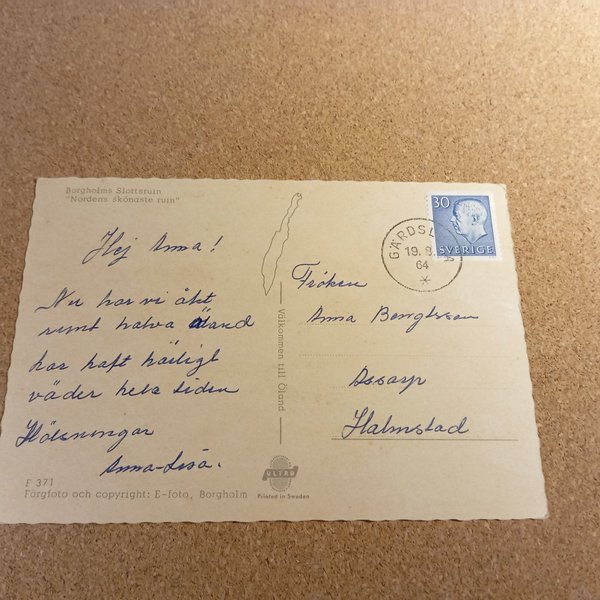 Borgholms Slottsruin
"Nordens skönaste ruin"
Hej Anna!
Nu har vi åkt
runt halva Öland
har haft härligt
väder hela tiden
Hälsningar
Anna-Lisa.
F 371
Färgfoto och copyright: E-foto, Borgholm
Välkommen till Öland
ULTRA
Printed in Sweden
30
SVERIGE
19. 8.
64
Fröken
Anna Bengtsson
Halmstad